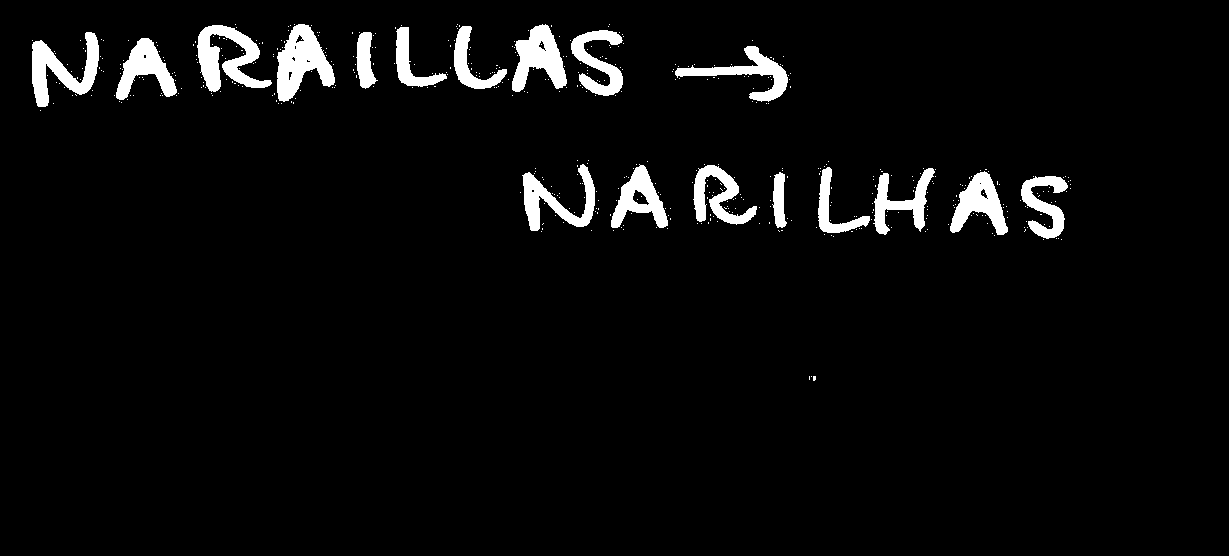 NARAILLAS →
NARILHAS